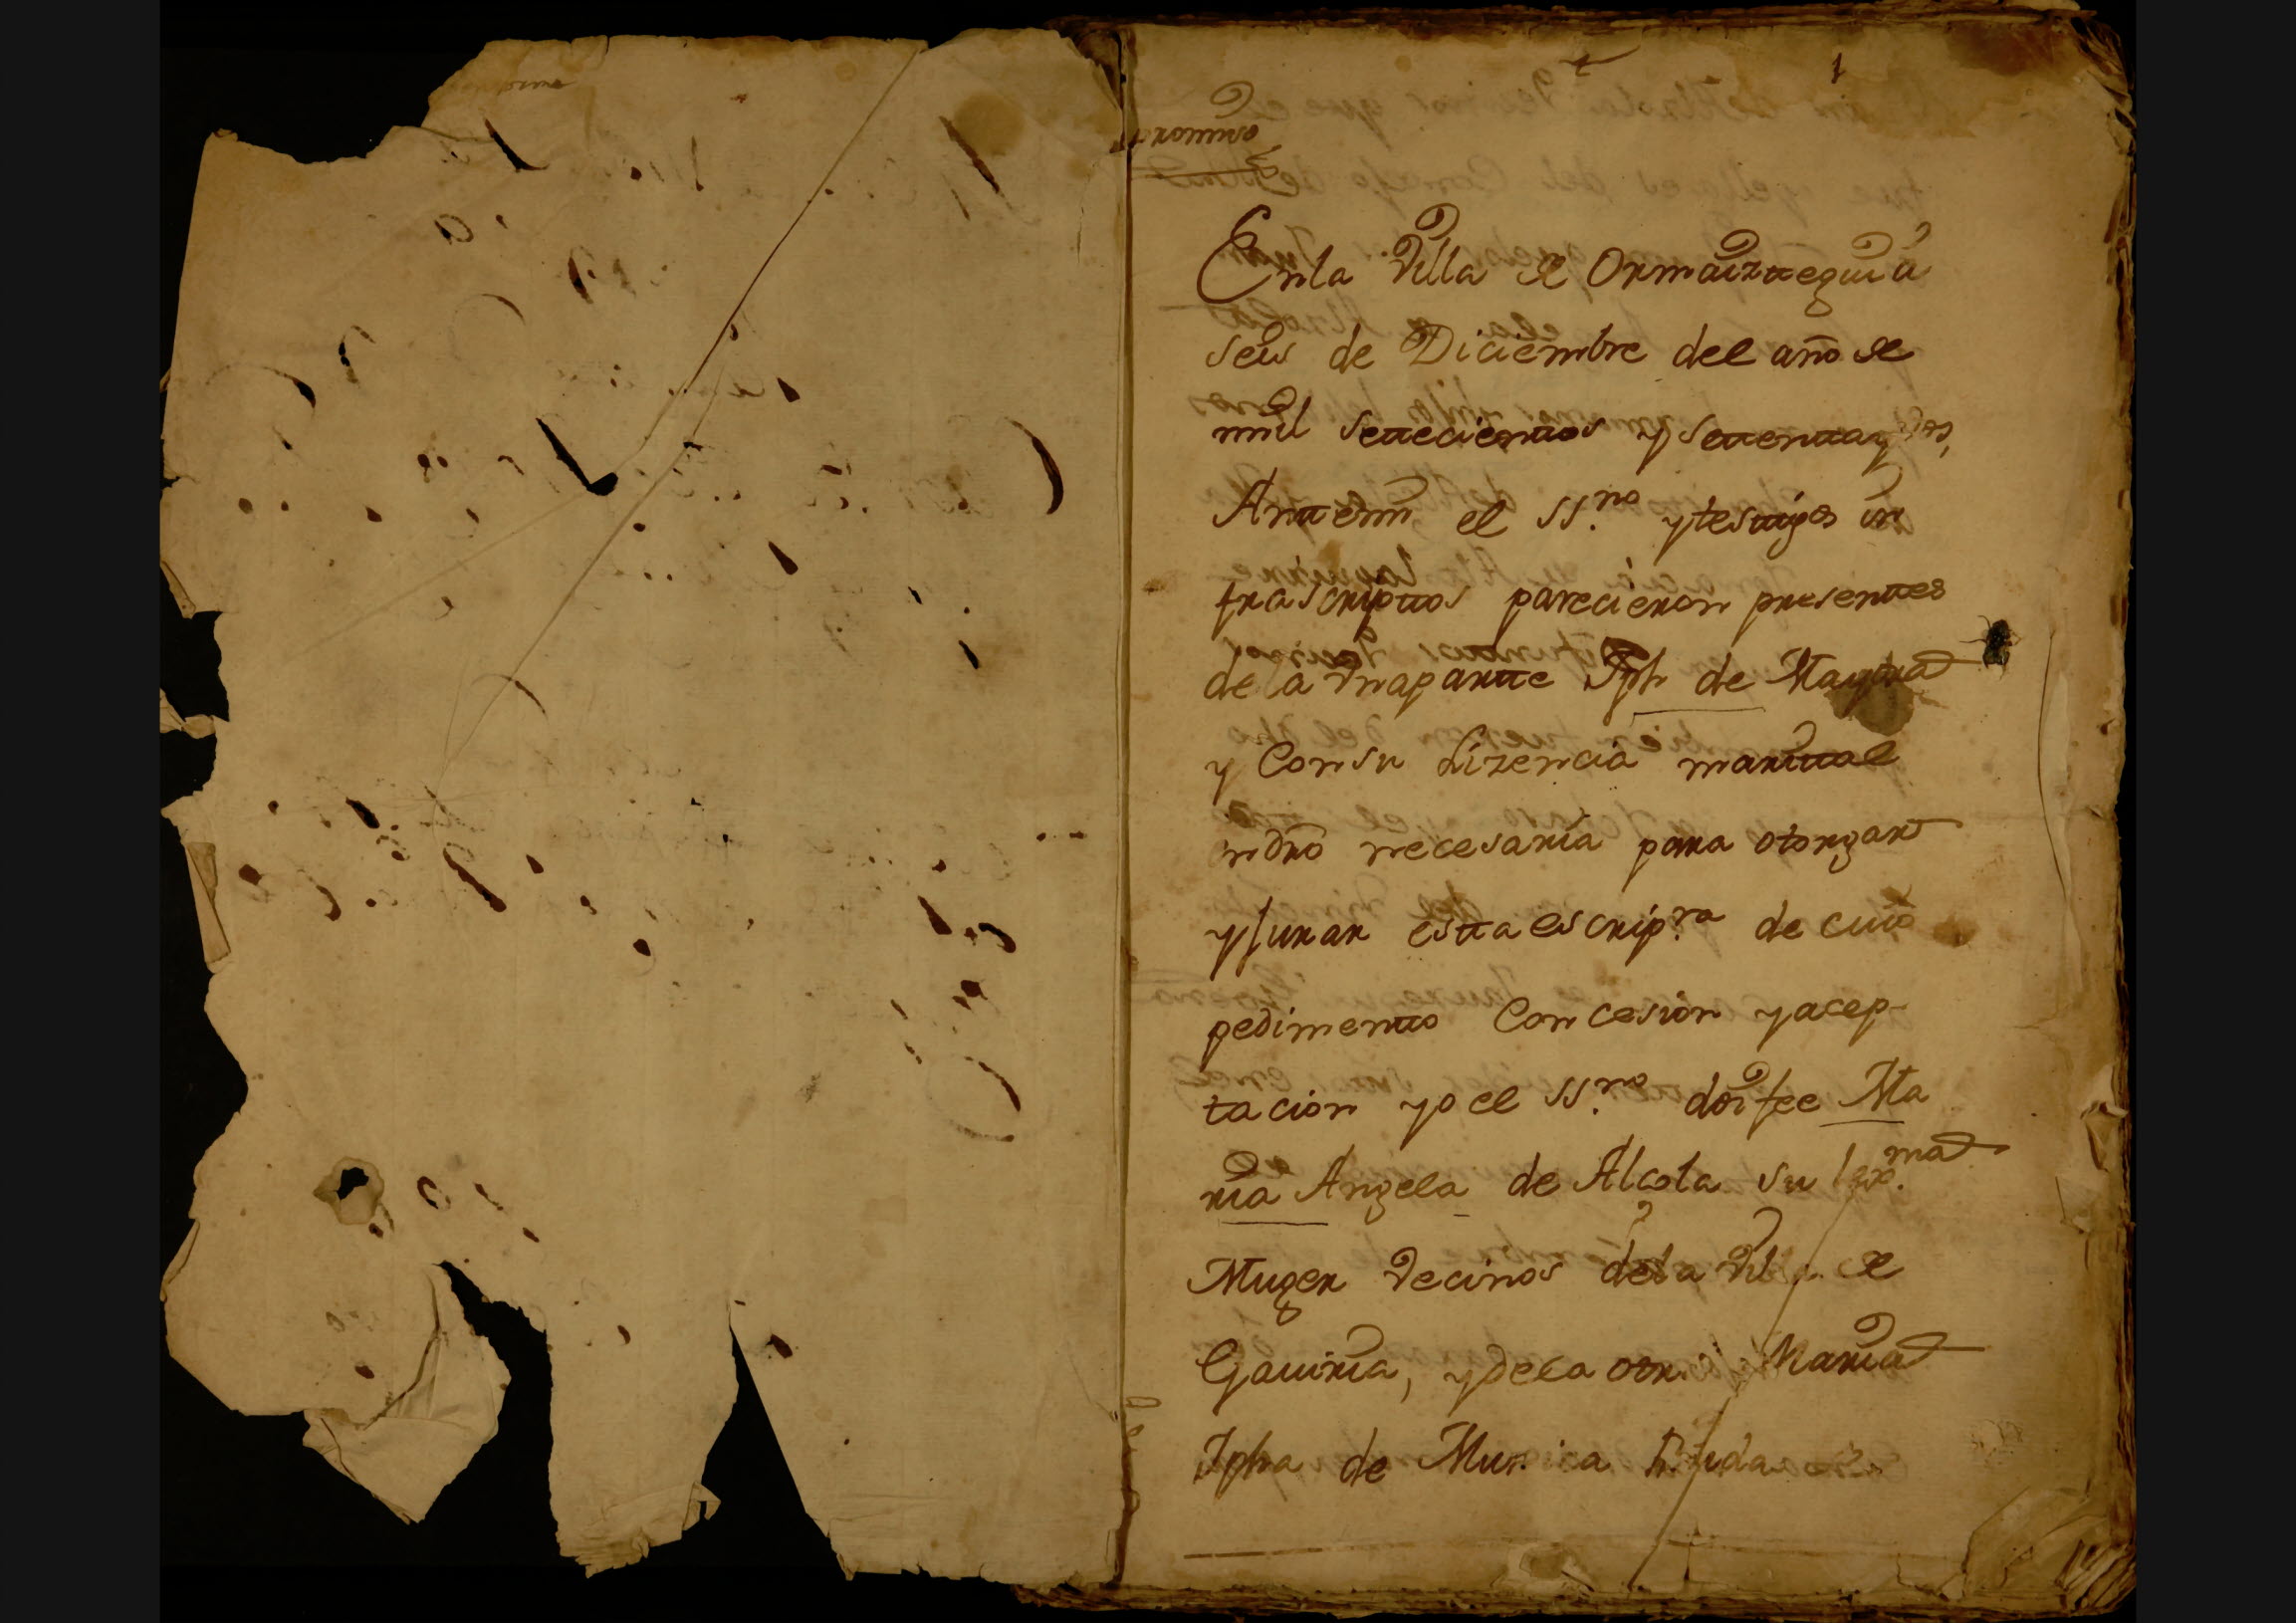 1
En la Villa de Ormaiztegui a
seis de Diciembre del año de
mil settecientos y settenta y dos,
Antte mi el ss.no y testigos in
frascripttos parecieron presenttes
de la una partte Jph de Maytia
y Con su Lizencia marittal
en dro necesaria para otorgar
y Jurar estta escrip.ra de cuio
pedimentto Concesion y acep-
tacion yo el ss.no doi fee Ma
ria Angela de Alcota su lex.ma
Muger Vecinos de la Villa de
Gaviria, y de la otra Maria
Jpha de Murica Viuda